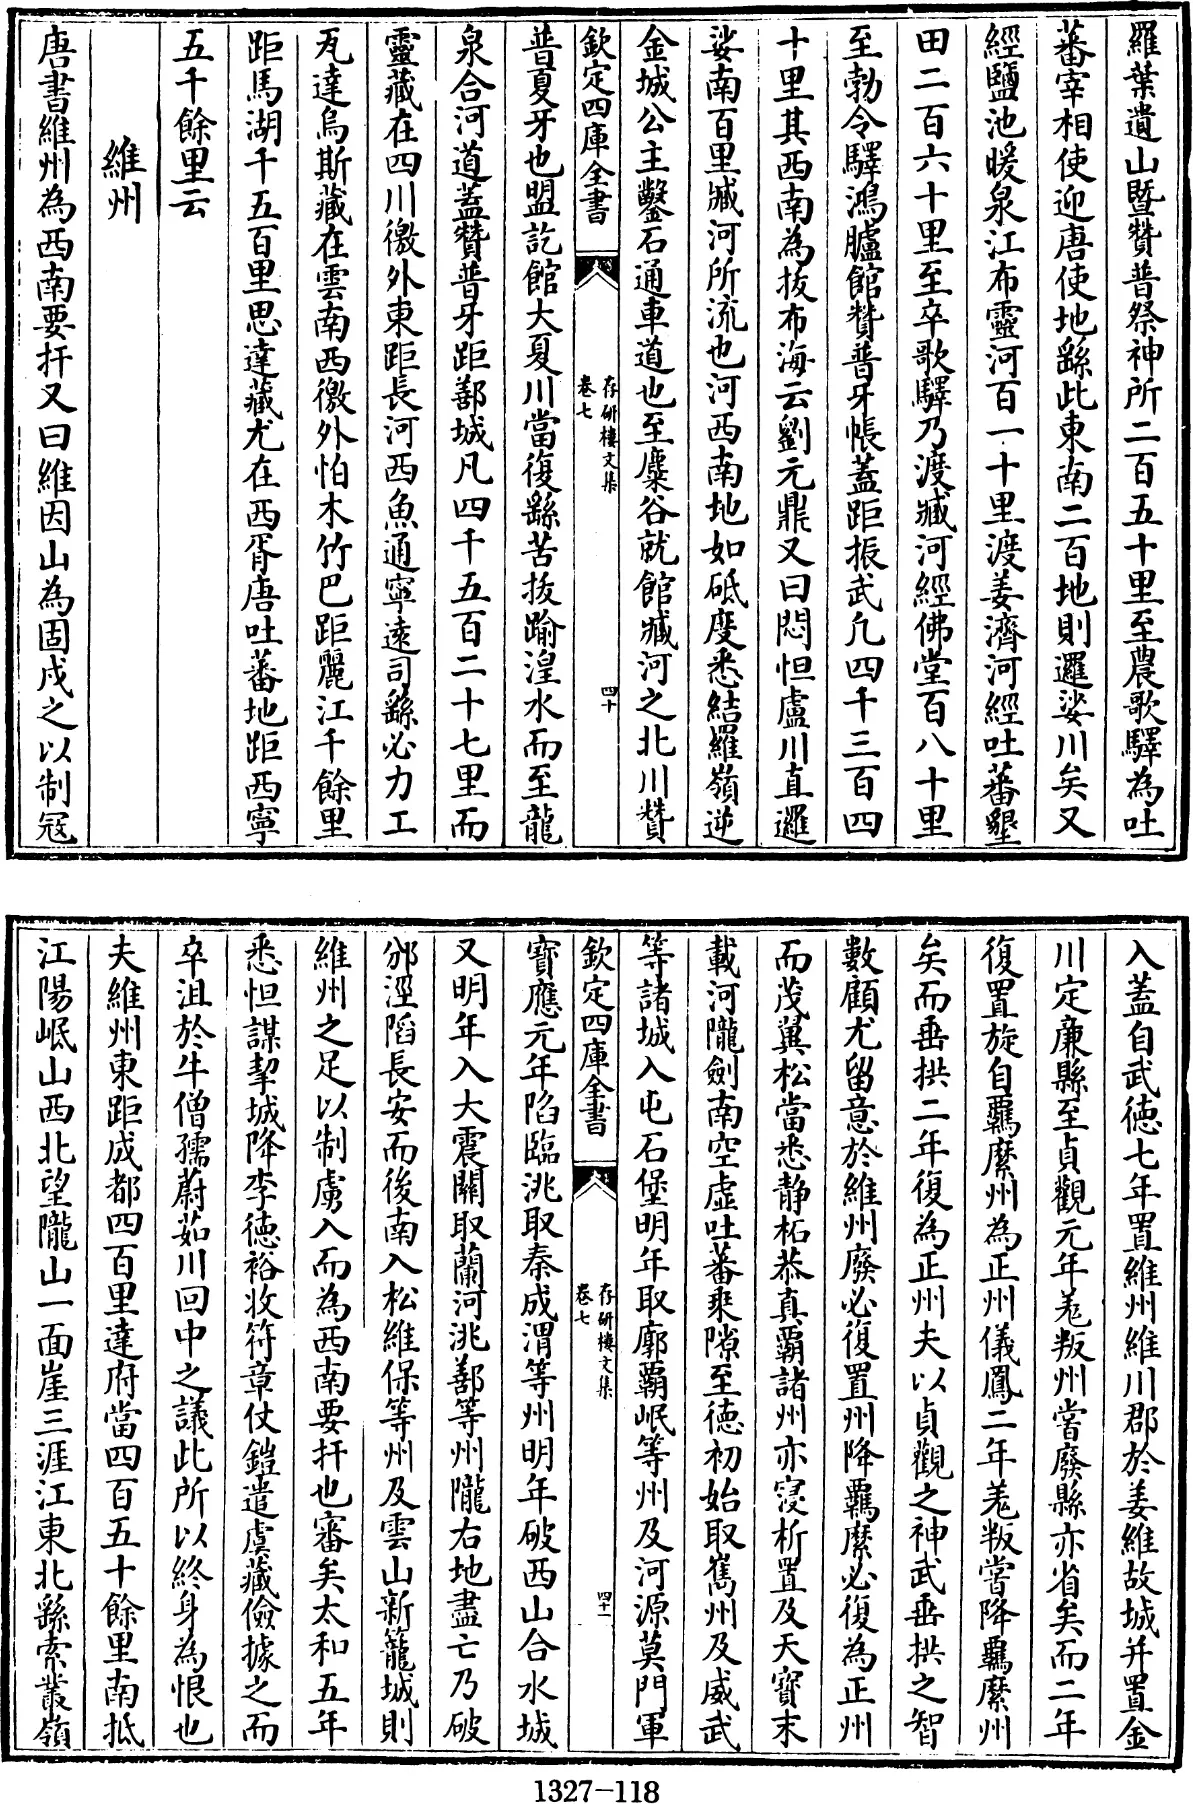 羅葉遺山曁贊普祭神所二百五十里至農歌驛為吐
蕃宰相使迎唐使地繇此東南二百地則邏娑川矣又
經鹽池暖泉江布靈河百一十里渡姜濟河經吐蕃墾
田二百六十里至卒歌驛乃渡臧河經佛堂百八十里
至勃令驛鴻臚館贊普牙帳蓋距振武凡四千三百四
十里其西南為拔布海云劉元鼎又曰悶怛盧川直邏
娑南百里臧河所流也河西南地如砥度悉結羅嶺逆
金城公主鑿石通車道也至麋谷就館臧河之北川贊
欽定四庫全書
存研樓文集
卷七
四十
普夏牙也盟訖館大夏川當復繇苦拔踰湟水而至龍
泉合河道蓋贊普牙距鄯城凡四千五百二十七里而
靈藏在四川徼外東距長河西魚通寧遠司繇必力工
瓦達烏斯藏在雲南西徼外怕木竹巴距麗江千餘里
距馬湖千五百里思達藏尤在西胥唐吐蕃地距西寧
五千餘里云
維州
唐書維州為西南要扞又曰維因山為固戍之以制冦
入蓋自武德七年置維州維川郡於姜維故城并置金
川定亷縣至貞觀元年羌叛州嘗廢縣亦省矣而二年
復置旋自羈縻州為正州儀鳳二年羌叛嘗降羈縻州
矣而垂拱二年復為正州夫以貞觀之神武垂拱之智
數顧尤留意於維州廢必復置州降羈縻必復為正州
而茂翼松當悉静柘恭真霸諸州亦寖析置及天寶末
載河隴劍南空虛吐蕃乘隙至德初始取雟州及威武
等諸城入屯石堡明年取廓霸岷等州及河源莫門軍
欽定四庫全書
存研樓文集
卷七
四十一
寶應元年陷臨洮取秦成渭等州明年破西山合水城
又明年入大震關取蘭河洮鄯等州隴右地盡亡乃破
邠涇陷長安而後南入松維保等州及雲山新籠城則
維州之足以制虜入而為西南要扞也審矣太和五年
悉怛謀挈城降李德裕收符章仗鎧遣虞藏儉據之而
卒沮於牛僧孺蔚茹川回中之議此所以終身為恨也
夫維州東距成都四百里達府當四百五十餘里南抵
江陽岷山西北望隴山一面崖三涯江東北繇索叢嶺
1327-118